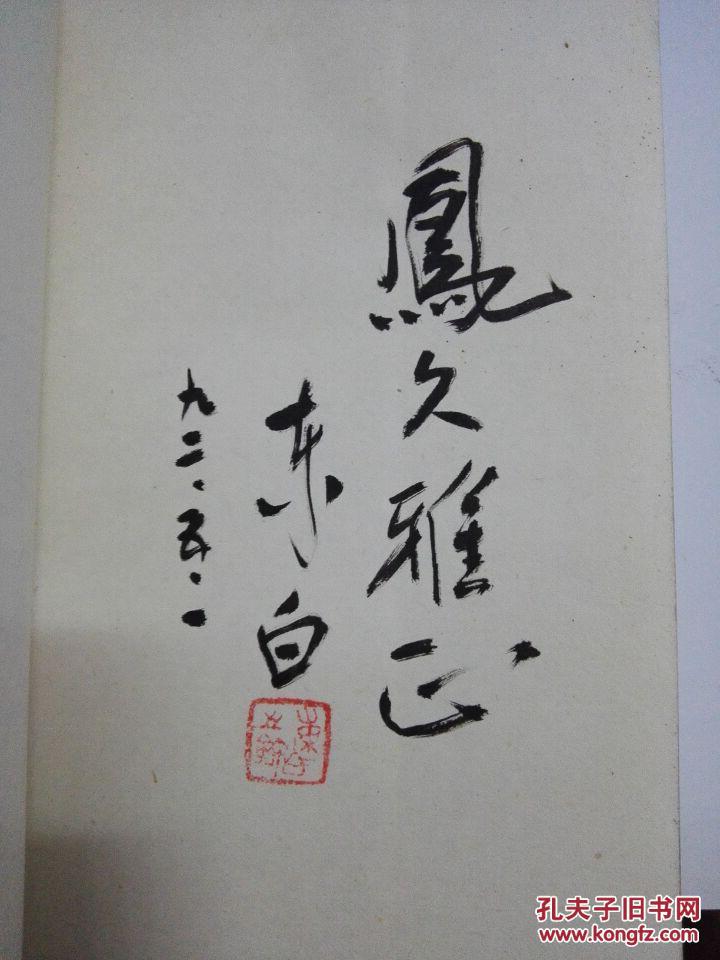 鳳久雅正
東白
九二、五、一
孔夫子旧书网
www.kongfz.com